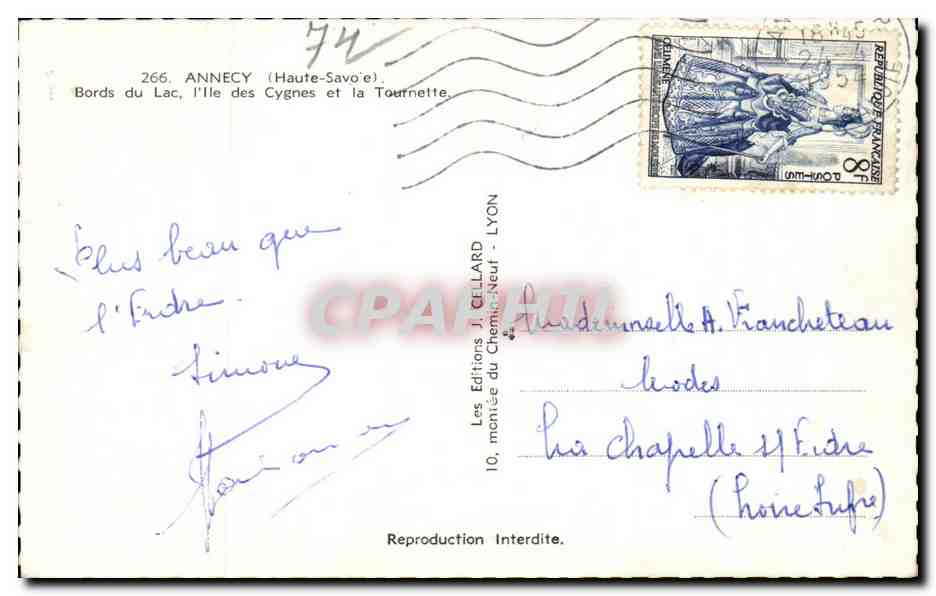 74
266. ANNECY (Haute-Savoie).
Bords du Lac, l'Ile des Cygnes et la Tournette.
18H45
24-4
1954
CELIMENE
REPUBLIQUE FRANÇAISE
8F
POSTES
Plus beau que
l'Erdre.
Simone
Les Editions J. CELLARD
10, montée du Chemin-Neuf - LYON
CPAPHIL
Mademoiselle A. Francheteau
Modes
La Chapelle s/ Erdre
(Loire Infre)
Reproduction Interdite.